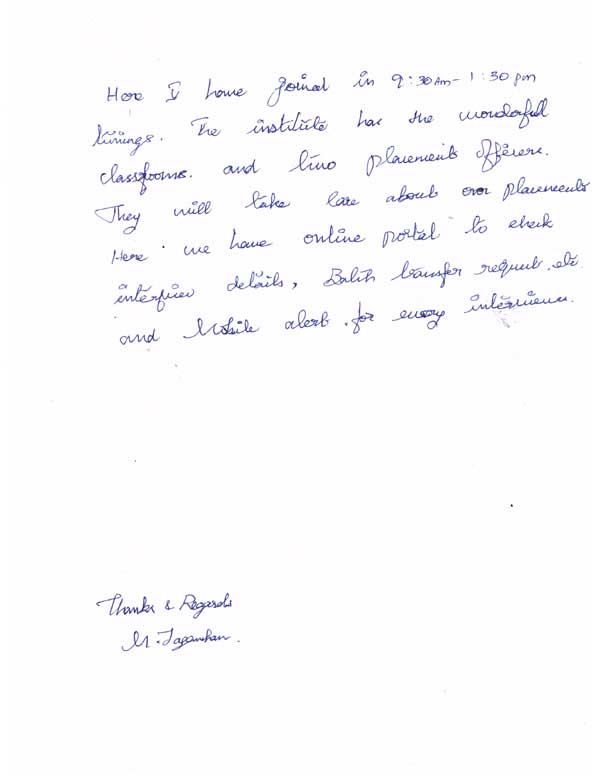 Here I have joined in 9:30 Am - 1:30 pm
timings. The institute has the wonderfull
classrooms. and two placements officers.
They will take care about over placements
Here we have online portal to check
interview details, Batch transfer request. etc
and Mobile alert. for every interviews.
Thanks & Regards
M. Jagamohan.